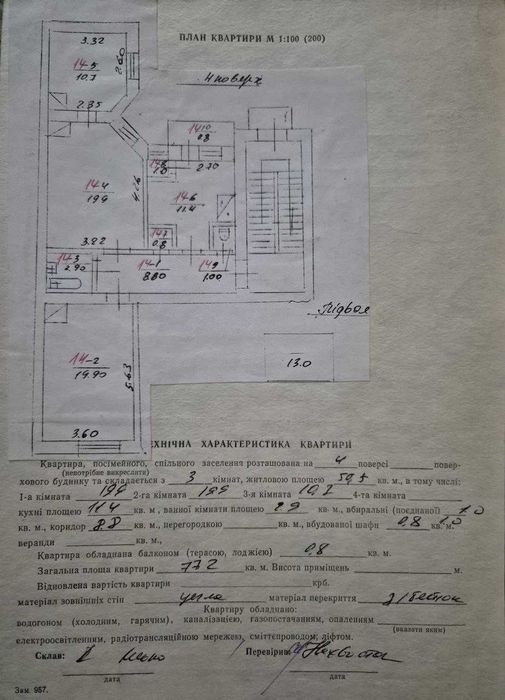 ПЛАН КВАРТИРИ М 1:100 (200)
4 поверх
3.32
14-5
10.7
2.60
2.35
14-10
0.8
14-8
1.0
2.70
14-4
19.9
4.76
14-6
11.4
14-7
0.8
3.82
14-3
2.90
14-1
8.80
14-9
1.00
Підвал
13.0
14-2
19.90
5.63
3.60
ТЕХНІЧНА ХАРАКТЕРИСТИКА КВАРТИРИ
Квартира, посімейного, спільного заселення розташована на 4 поверсі повер-
(непотрібне викреслити)
хового будинку та складається з 3 кімнат, житловою площею 50,5 кв. м., в тому числі:
1-а кімната 19,9 2-га кімната 19,9 3-я кімната 10,7 4-та кімната
кухні площею 11,4 кв. м, ванної кімнати площею 2,9 кв. м., вбиральні (поєднаної) 1.0
кв. м., коридор 8,8 кв. м., перегородкою кв. м., вбудованої шафи 0,8 кв. м. 1.0
веранди кв. м.,
Квартира обладнана балконом (терасою, лоджією) 0,8 кв. м.
Загальна площа квартири 77,2 кв. м. Висота приміщень м.
Відновлена вартість квартири крб.
матеріал зовнішніх стін цегла матеріал перекриття з/бетон
Квартиру обладнано:
водогоном (холодним, гарячим), каналізацією, газопостачанням, опаленням
(вказати яким)
електроосвітленням, радіотрансляційною мережею, сміттєпроводом, ліфтом.
Склав: Перевірив:
дата дата
Зам. 957.